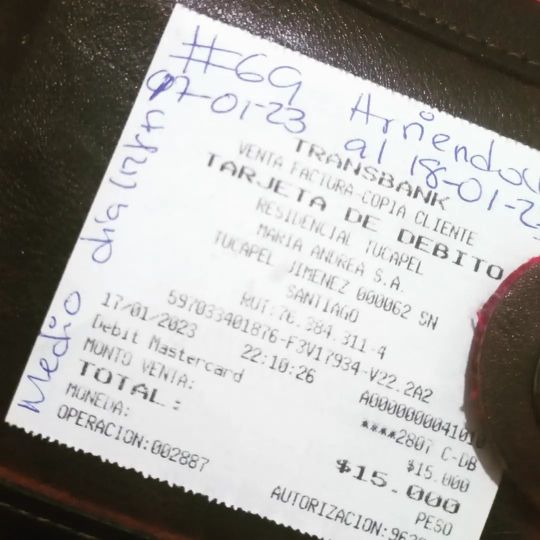 #69 Arriendo
17-01-23 al 18-01-2
Medio día (12hr)
TRANSBANK
VENTA FACTURA-COPIA CLIENTE
TARJETA DE DEBITO
RESIDENCIAL TUCAPEL
MARIA ANDREA S.A.
TUCAPEL JIMENEZ 000062 SN
SANTIAGO
RUT:76.384.311-4
597033401876-F3V17934-V22.2A2
17/01/2023 22:10:26 A0000000041010
Debit Mastercard ****2807 C-DB
MONTO VENTA: $15.000
TOTAL: $15.000
MONEDA: PESO
OPERACION:002887 AUTORIZACION:963